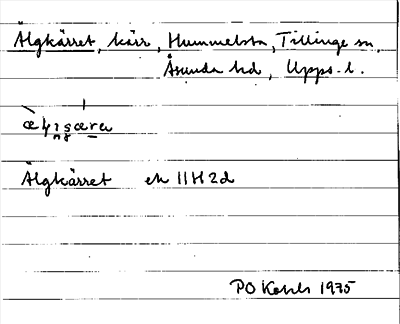 Älgkärret, kärr, Hummelsta, Tillinge sn,
Åsunda hd, Upps. l.
Älgkärret ek 11H2d
PO 1975